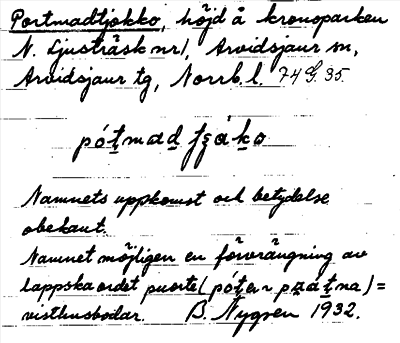 Portmadtjokko, höjd å kronoparken
N. Ljusträsk nr 1, Arvidsjaur sn,
Arvidsjaur tg, Norrb. l. 74 G. 35
Namnets uppkomst och betydelse
obekant.
Namnet möjligen en förvrängning av
lappska ordet puorte
visthusbodar. B. Nygren 1932.